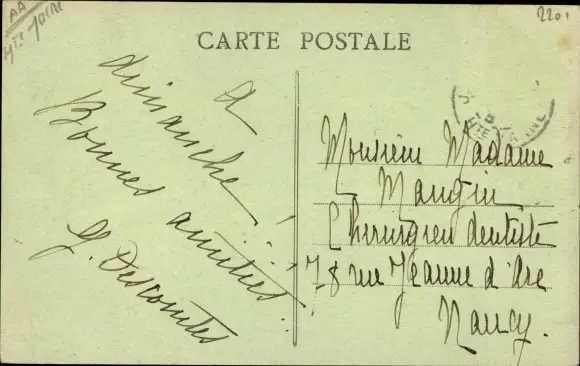 AA
Hte Loire
2201
CARTE POSTALE
à
dimanche
Bonnes amitiés!
G. Descomtes
Monsieur Madame
Mangin
Chirurgien dentiste
78 rue Jeanne d'Arc
Nancy.